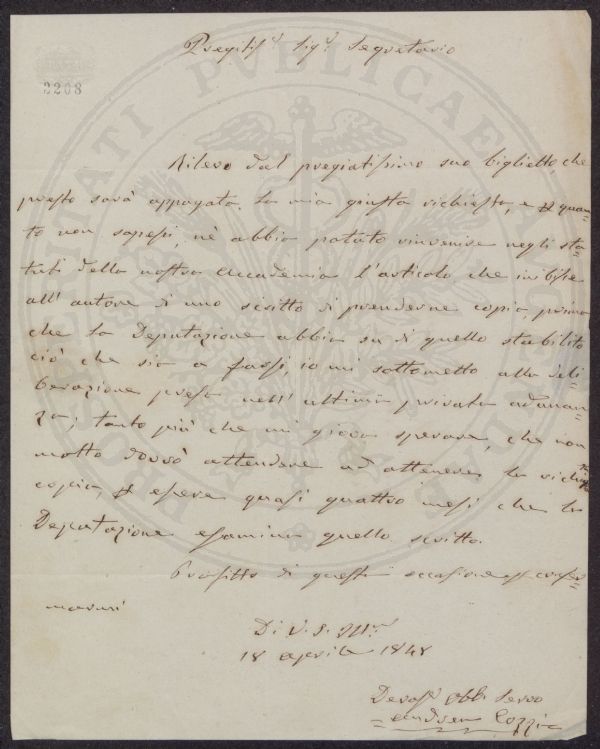 2208
Pregiatis.º Sigʳ Segretario
Rilevo dal pregiatissimo suo biglietto, che
presto sarà appagata la mia giusta richiesta, e quan=
to non sapessi, nè abbia potuto rinvenire negli sta=
tuti della nostra Accademia l'articolo che inibisce
all' autore di uno scritto di prenderne copia, prima
che la Deputazione abbia su di quello stabilito
ciò che sia a farsi, io mi sottometto alla deli=
berazione presa nell' ultima privata adunan=
za; tanto più che mi giova sperare, che non
molto dovrò attendere ad ottenere la richie
copia, essere quasi quattro mesi che la
Deputazione esamina quello scritto.
Profitto di questa occasione confer=
marmi
Di V. S. Illᵐᵃ
18 aprile 1848
Devoᵐᵒ Obbˡ Servo
Andrea Cozzi
PROSPERITATI PVBLICAE AVGENDAE